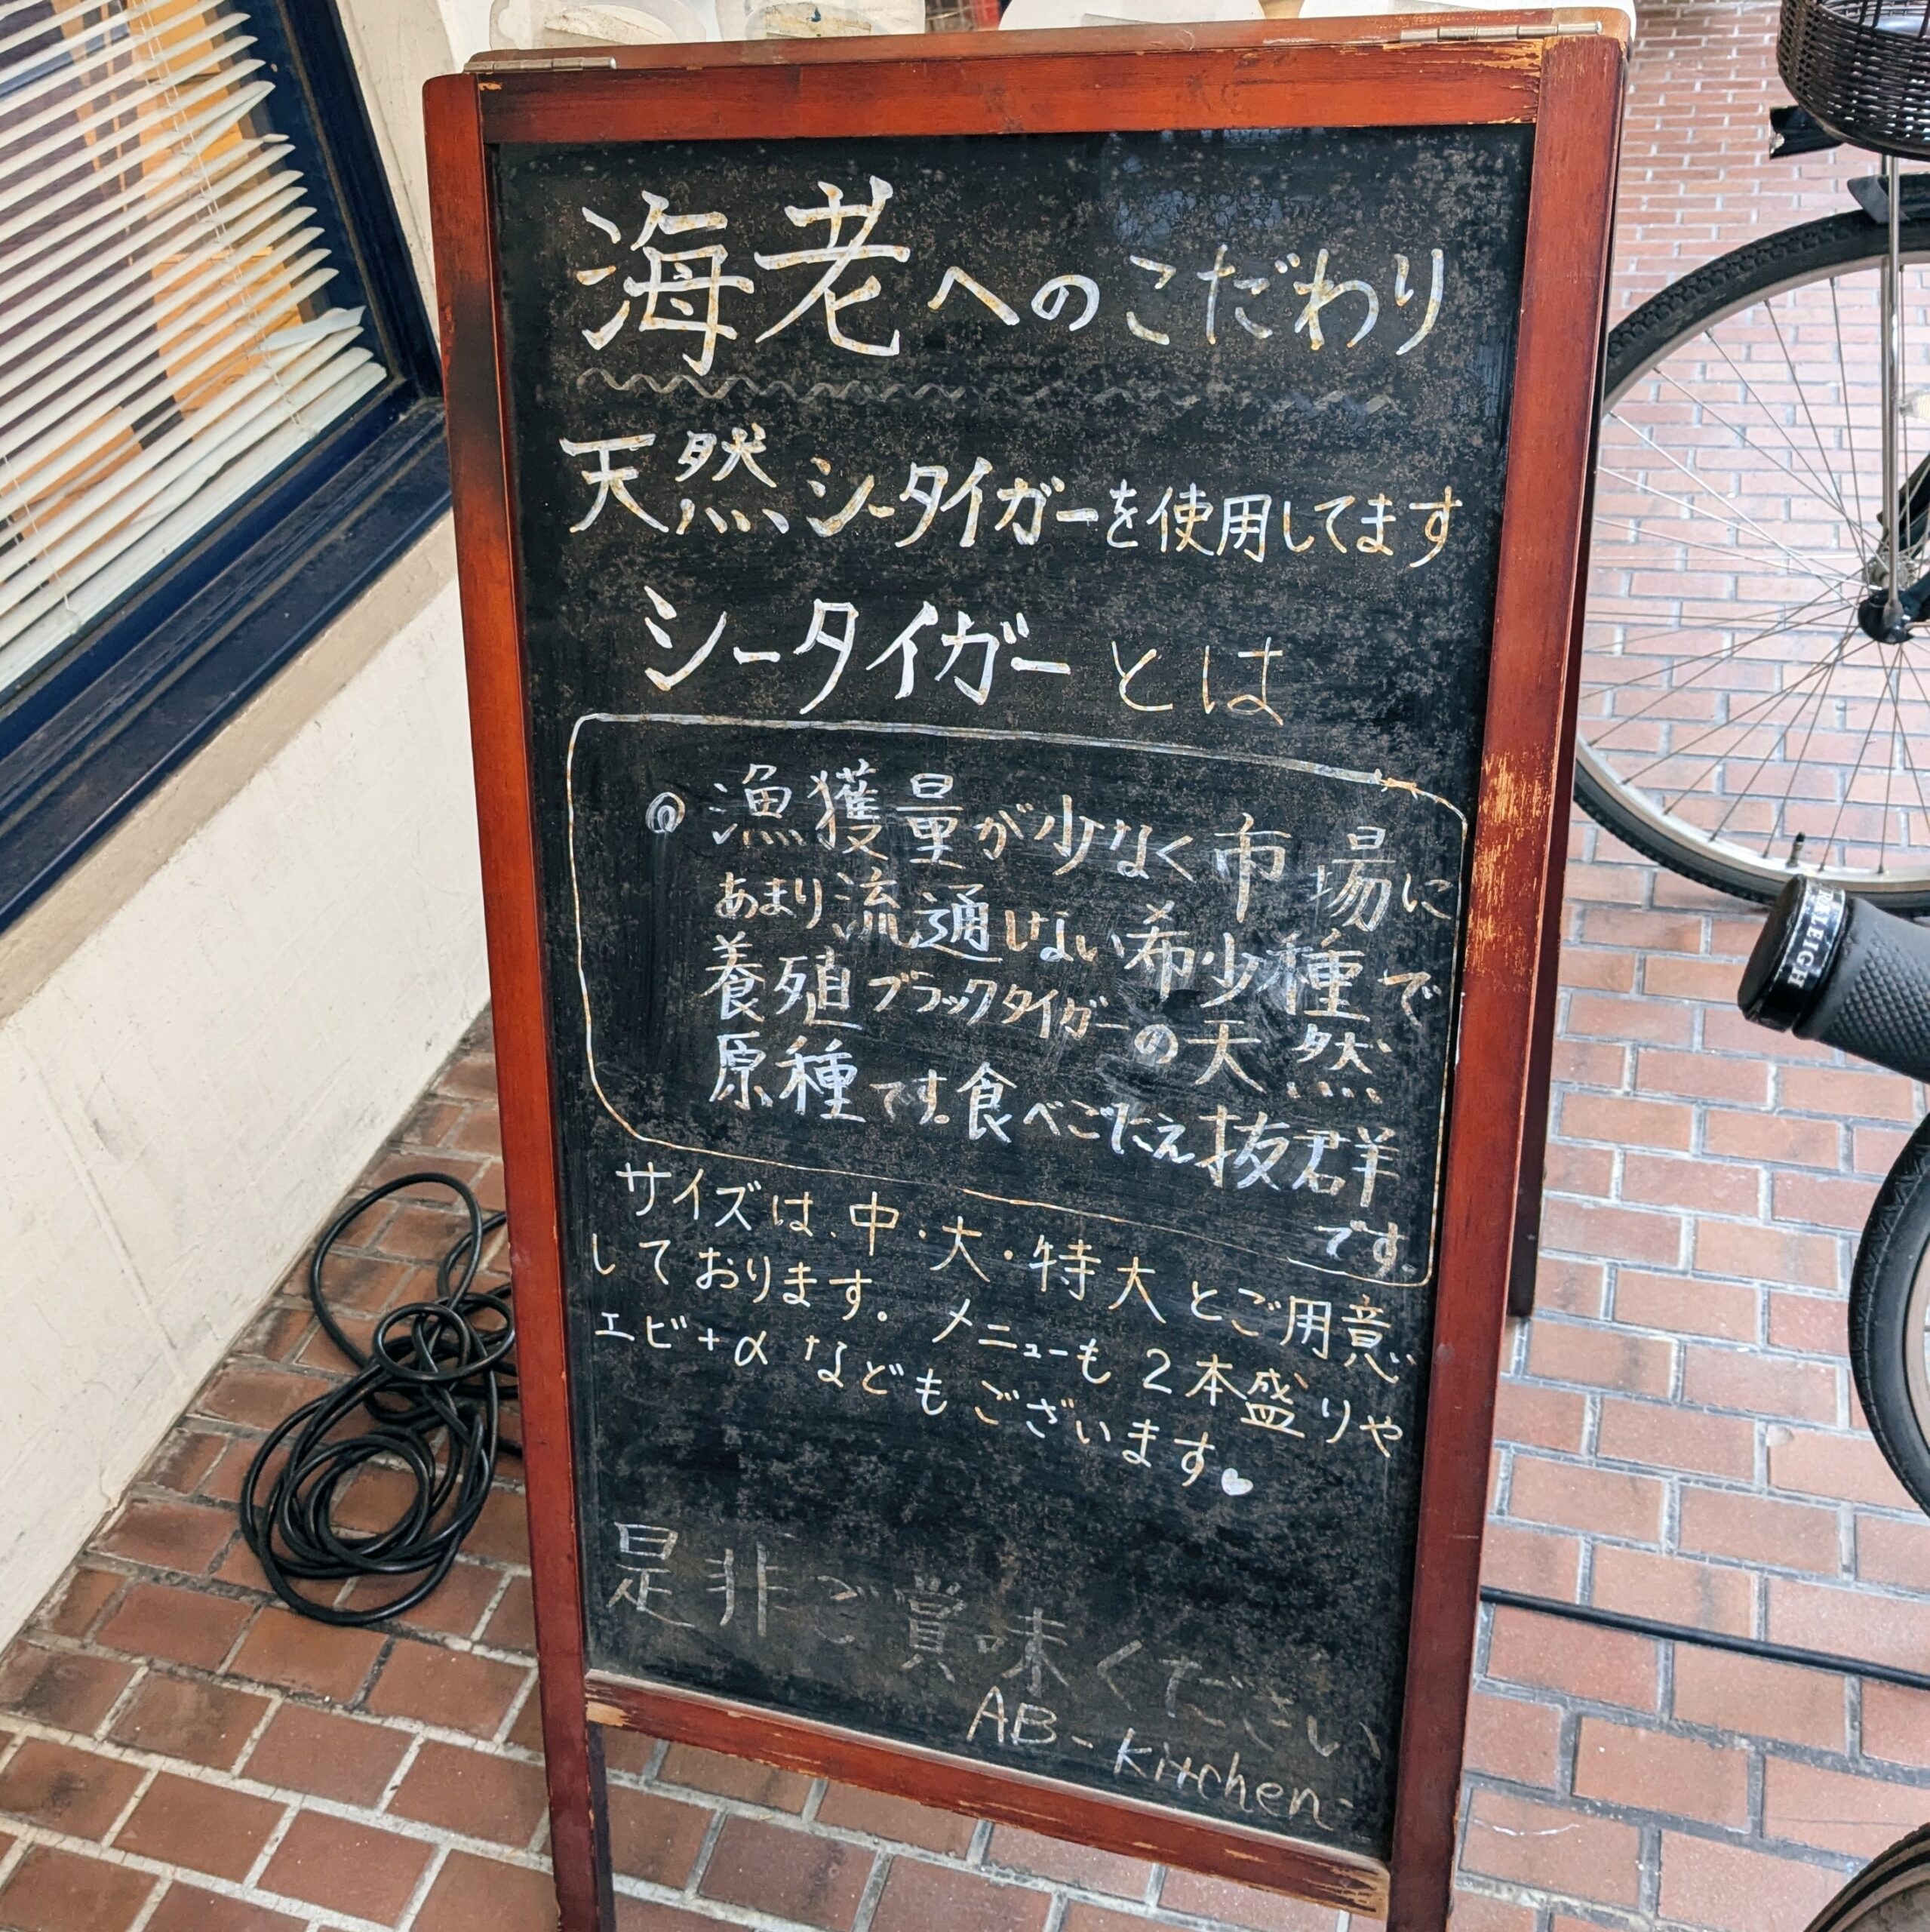 海老へのこだわり
天然シータイガーを使用してます
シータイガーとは
◎漁獲量が少なく市場に
あまり流通しない希少種で
養殖ブラックタイガーの天然
原種です。食べごたえ抜群
です。
サイズは、中・大・特大とご用意
しております。メニューも2本盛りや
エビ+αなどもございます♥
是非ご賞味ください
AB-kitchen-
RALEIGH